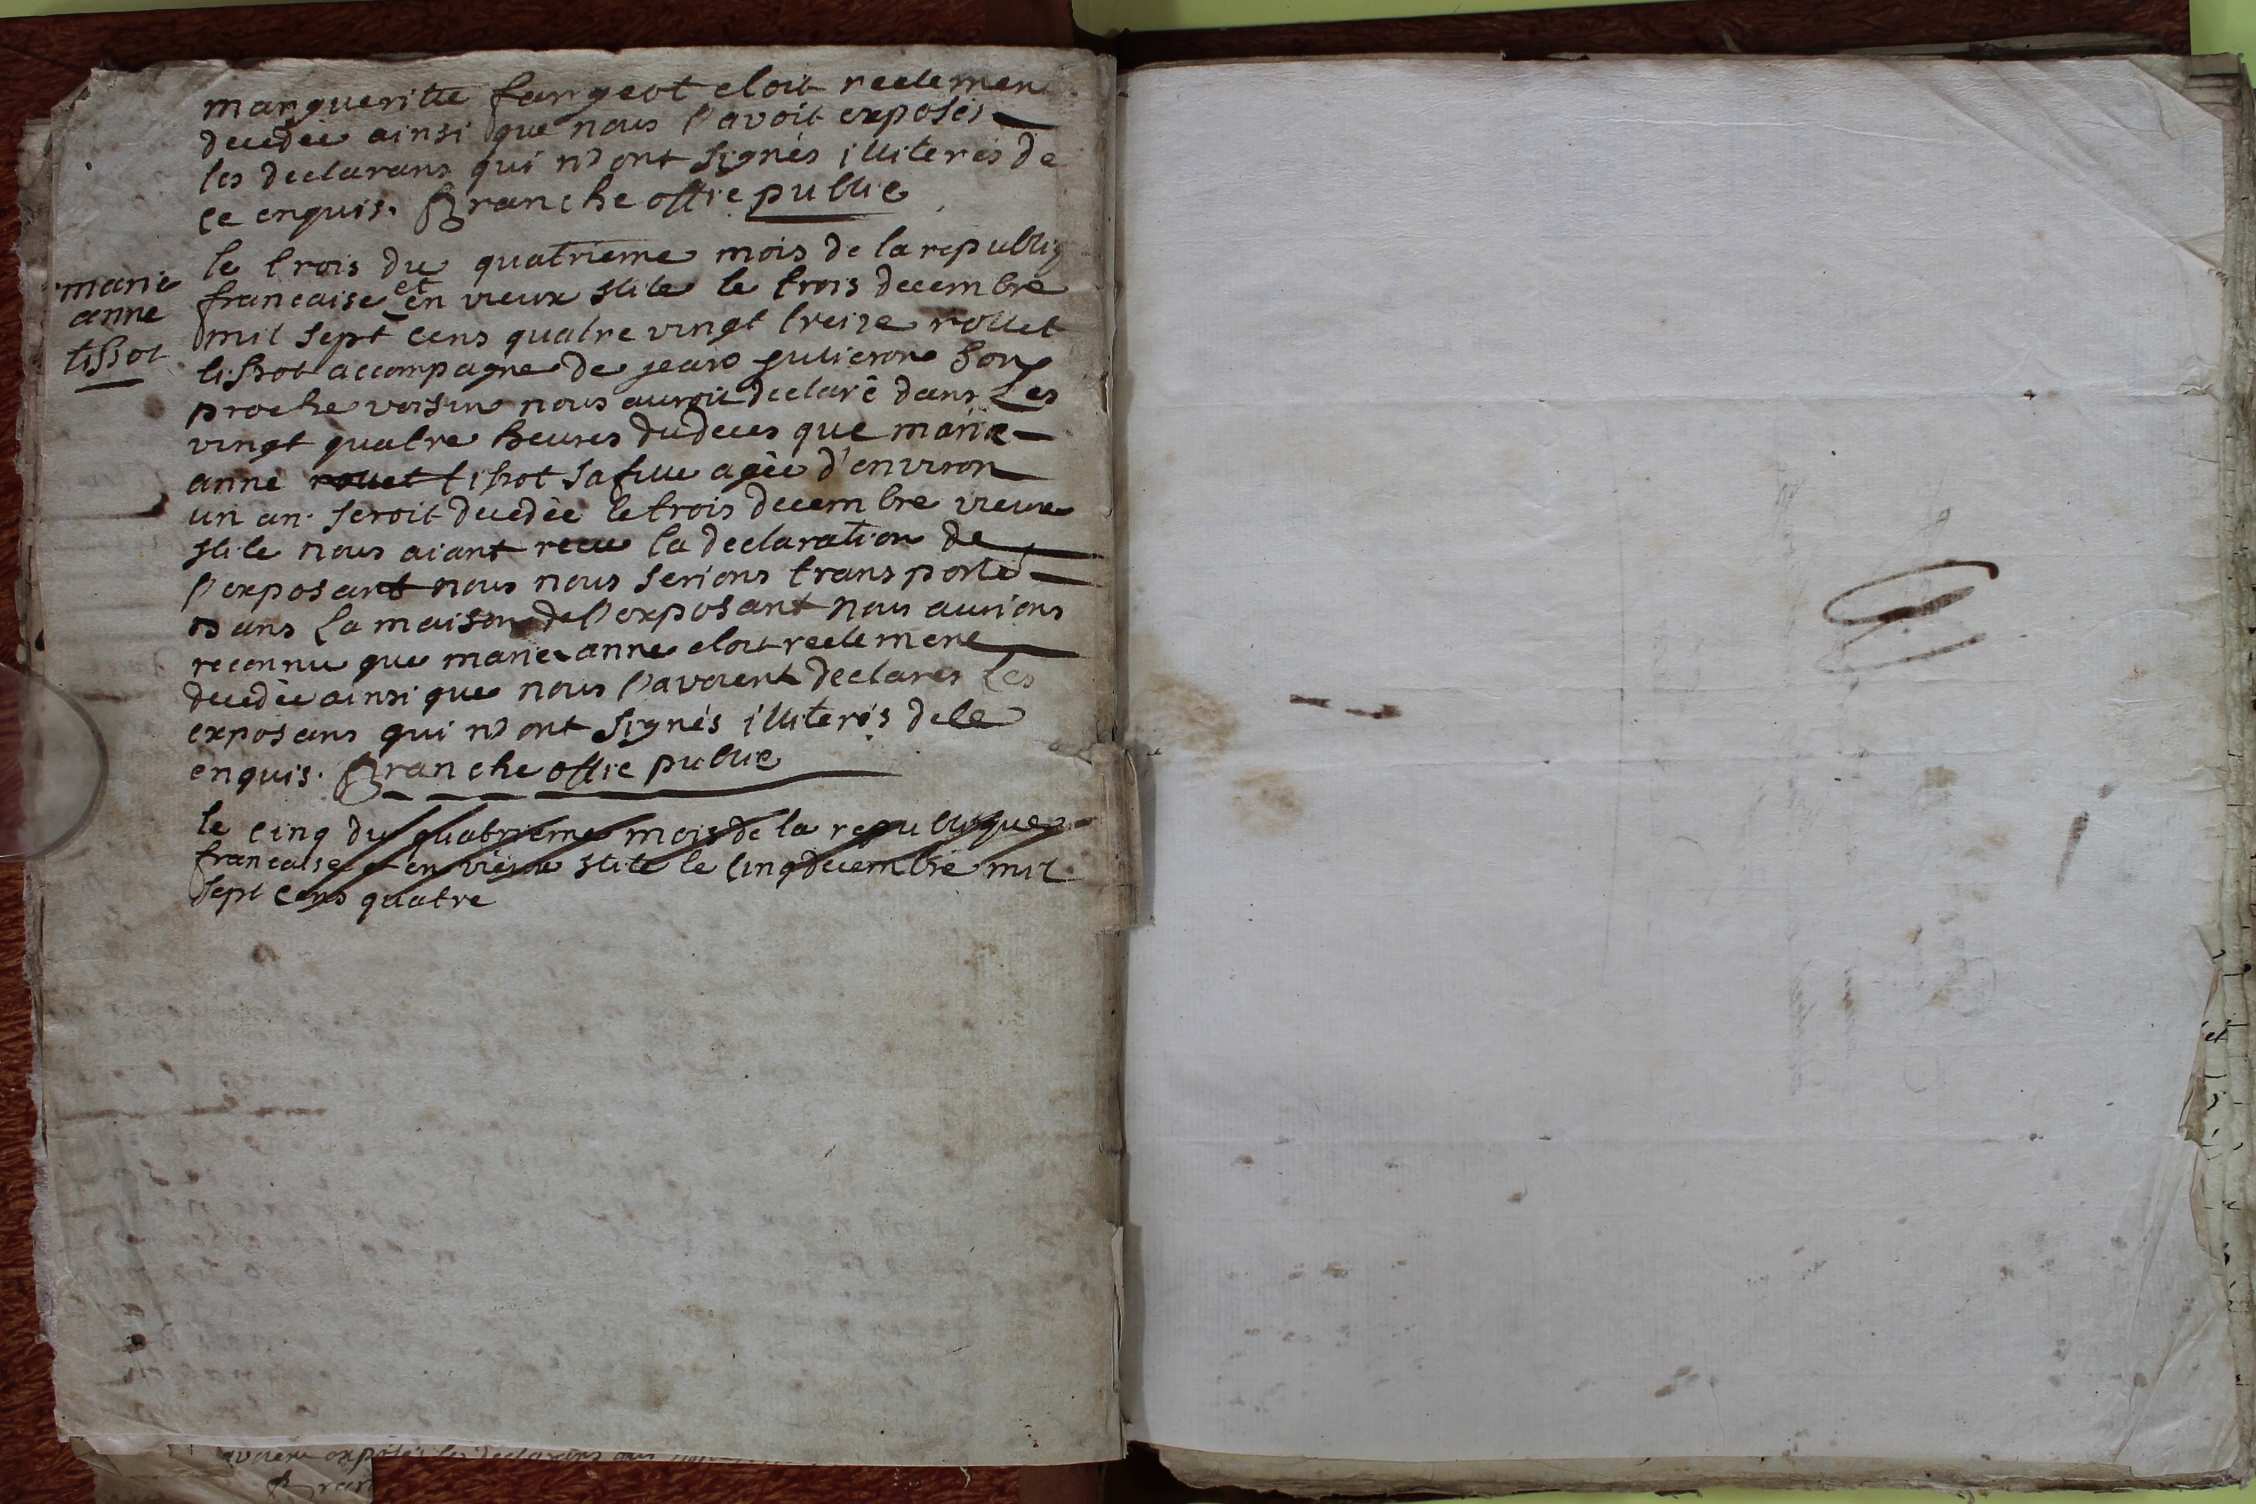 margueritte fargeot etoit reelement
decedée ainsi que nous l'avoit exposés
les declarans qui n'ont signés illiterés de
ce enquis. Branche offie public
marie
anne
tissot
le trois du quatrieme mois de la republiq
francaise et en vieux stile le trois decembre
mil sept cens quatre vingt treize rollet
tissot accompagne de jean gulieron son
proche voisin nous auroit declaré dans les
vingt quatre heures du deces que marie
anne rollet tissot sa fille agée d'environ
un an. seroit decedée le trois decembre vieux
stile nous aiant recu la declaration de
l'exposant nous nous serions transporté
dans la maison de l'exposant nous aurions
reconnu que marie anne etoit reelement
decedée ainsi que nous l'avoient declarés les
exposans qui n'ont signés illiterés de ce
enquis. Branche offie public
le cinq du quatrieme mois de la republique
francaise et en vieux stile le cinq decembre mil
sept cens quatre
avoient exposés les declarans qui
Bran
et